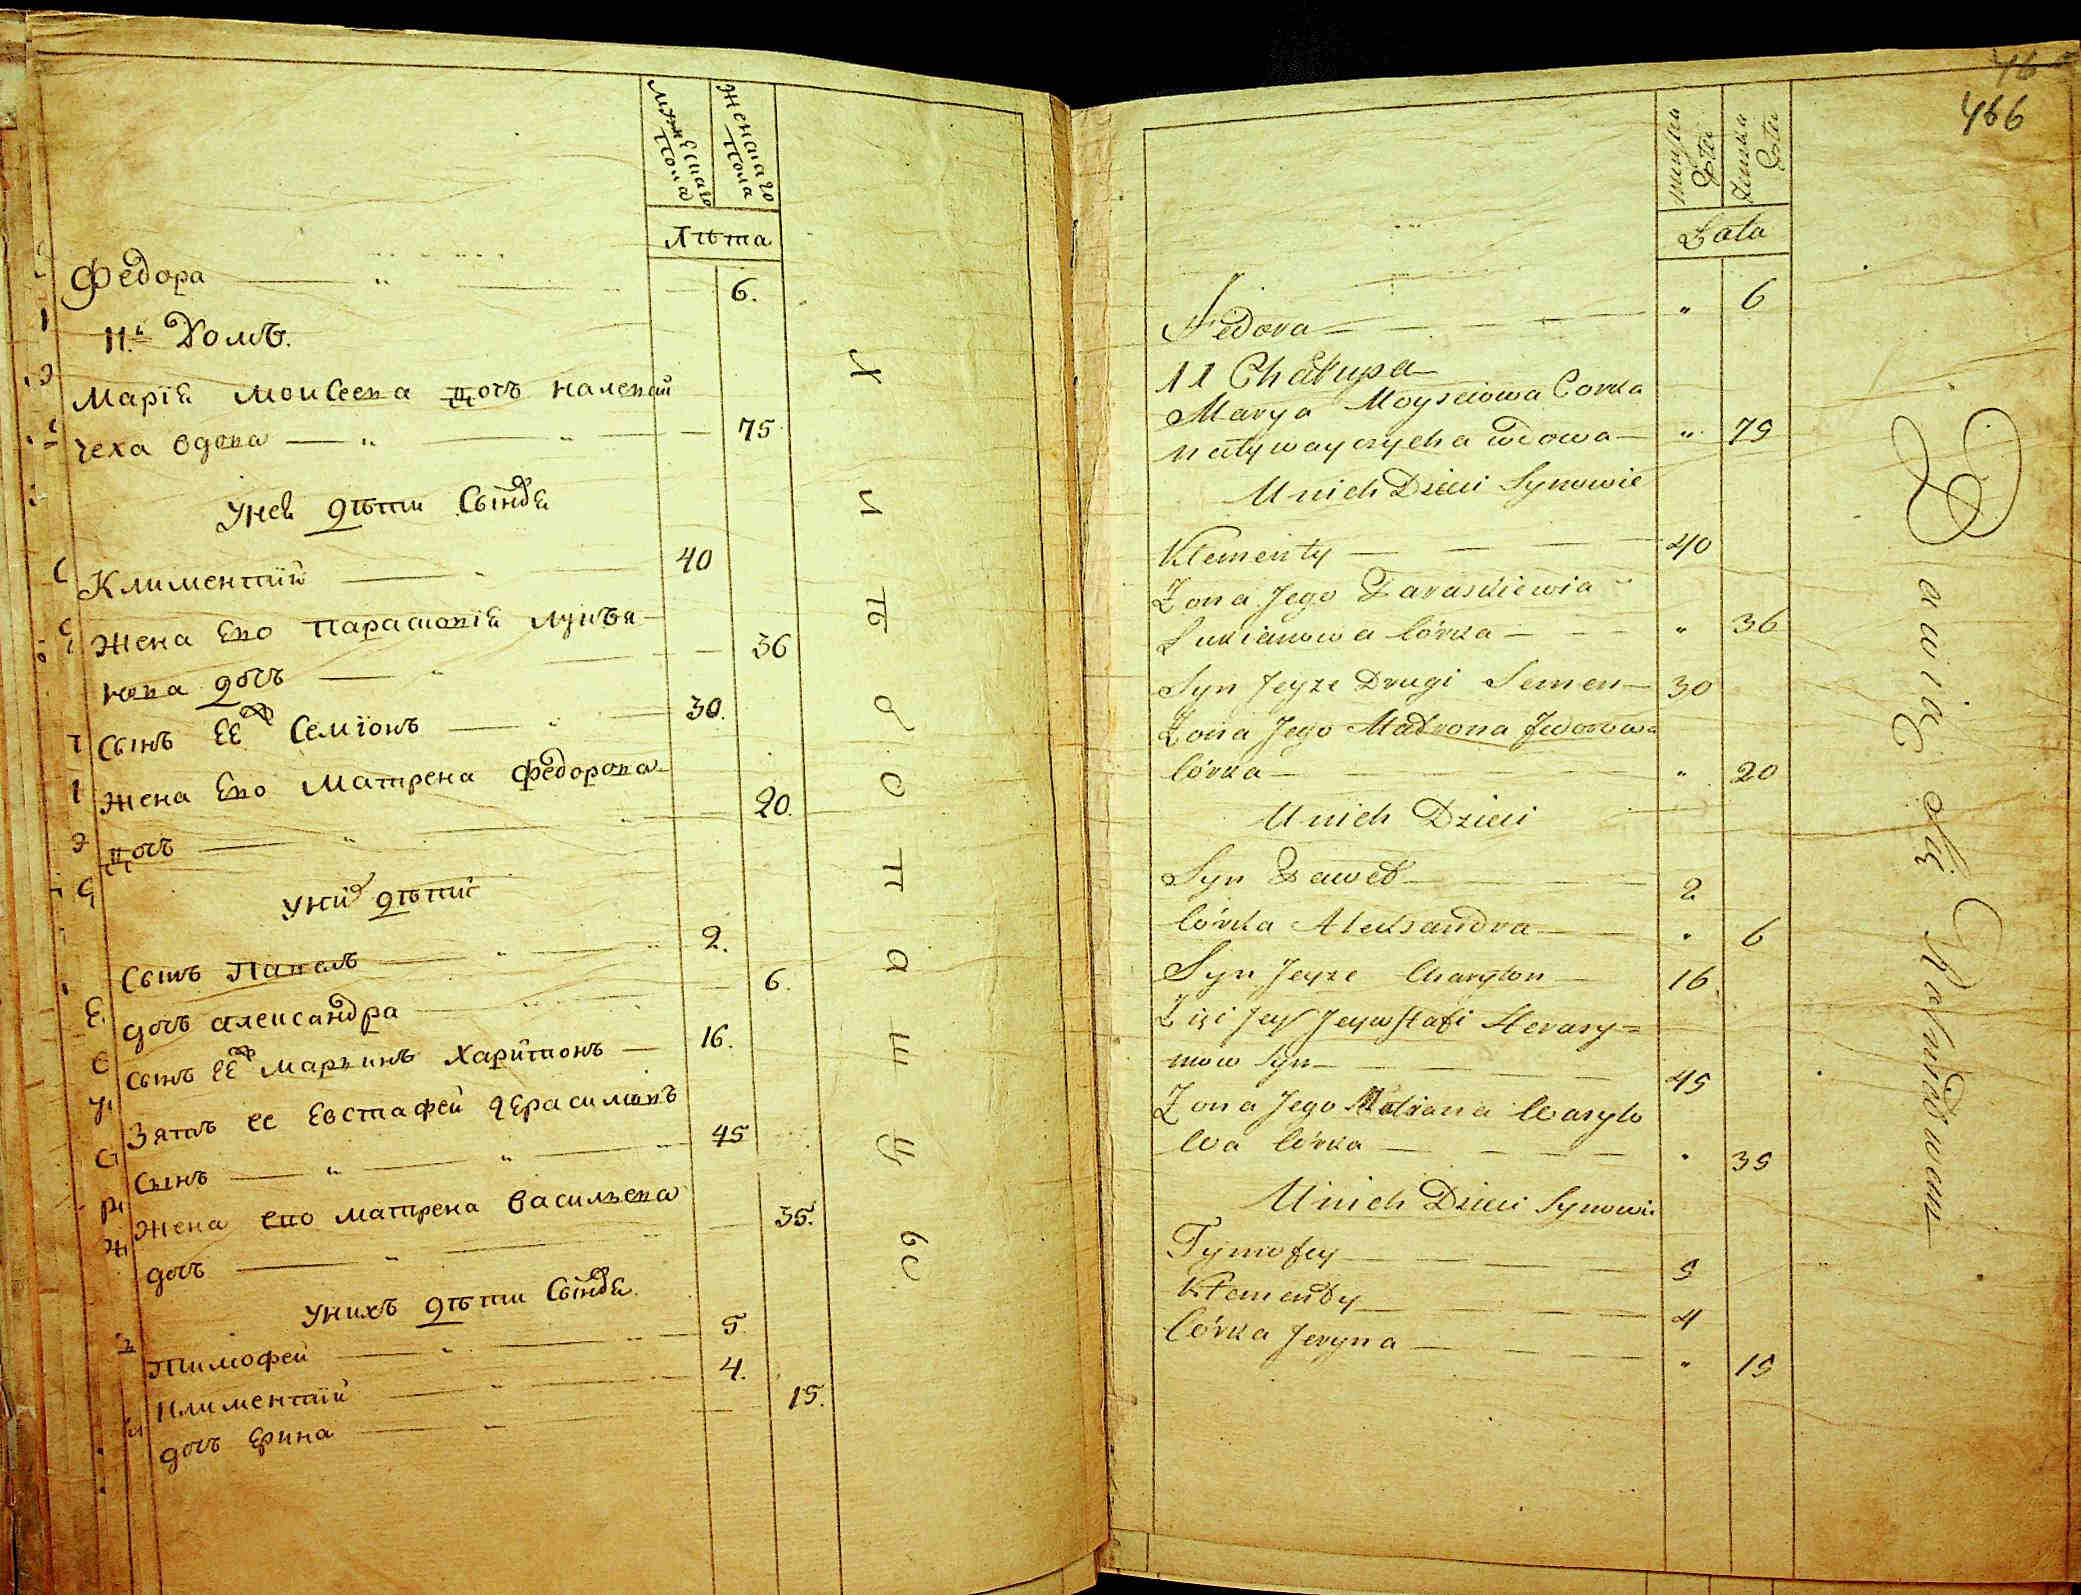 Мужескаго пола
Женскаго пола
Лѣта
Федора 6.
11.й Домъ.
Марія Моисеева дочь наливай
чеха вдова 75
У неи дѣти Сынове
Климентий 40
Жена Его Парасковія Лукья
нова дочь 36
Сынъ ЕЕ Семіонъ 30.
Жена Его Матрена Федорова
дочь 20.
У них дѣти
Сынъ Павелъ 2.
дочь Александра 6.
Сынъ ЕЕ Марьинъ Харитонъ 16.
Зять ее Евстафей Герасимовъ
Сынъ 45
Жена его Матрена Васильева
дочь 35.
У нихъ дѣти Сынове
Тимофей 5
Климентий 4.
дочь Ерина 15.
Хлѣбопашцы
466
męska płeć
żeńska płeć
Lata
Fedora " 6
11 Chałupa
Marya Moyseiowa Corka
Naływayczycha wdowa " 75
U nich Dzieci Synowie
Klementy 40
Żona Jego Paraskiewia
Lukianowa Córka " 36
Syn Jeyże Drugi Semen 30
Zona Jego Matrona Fedorowa
Córka " 20
U nich Dzieci
Syn Paweł 2
Córka Aleksandra " 6
Syn Jeyże Charyton 16
Zięć Jey Jewstafi Herasy=
mow Syn 45
Zona Jego Matrona Wasylo
wa Córka " 35
U nich Dzieci Synowie
Tymofey 5
Klementy 4
Córka Jeryna " 15
Bawią się Rolnictwem